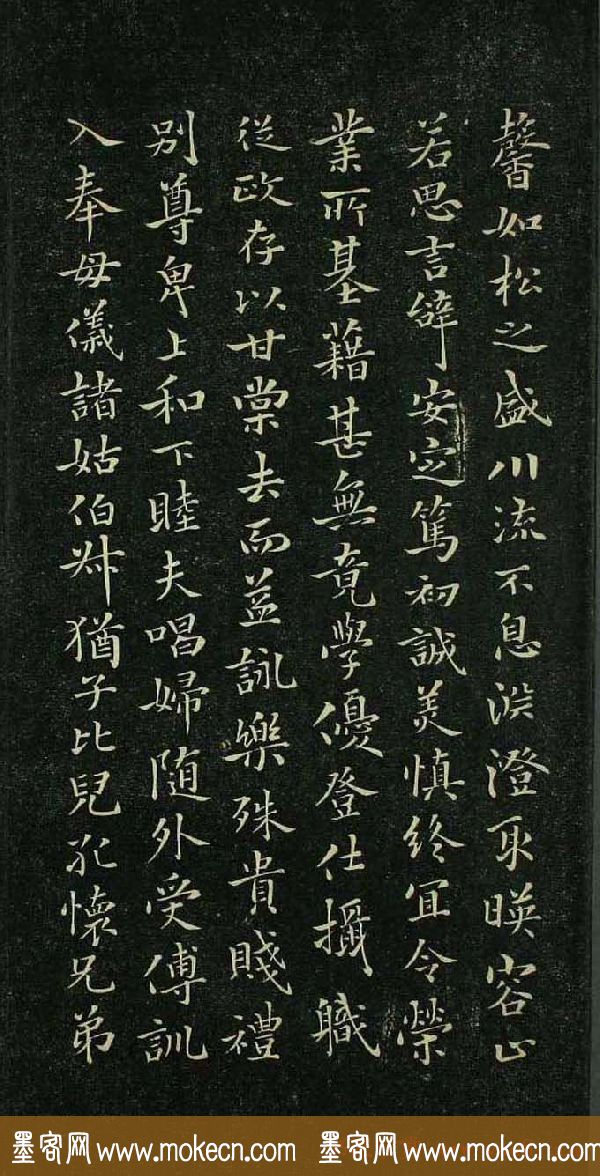 馨如松之盛川流不息淵澄取暎容止
若思言辝安定篤初誠羙慎終宜令榮
業所基藉甚無竟學優登仕攝職
從政存以甘棠去而益詠樂殊貴賤禮
別尊卑上和下睦夫唱婦随外受傅訓
入奉母儀諸姑伯叔猶子比兒孔懷兄弟
墨客网 www.mokecn.com 墨客网 www.mokecn.com